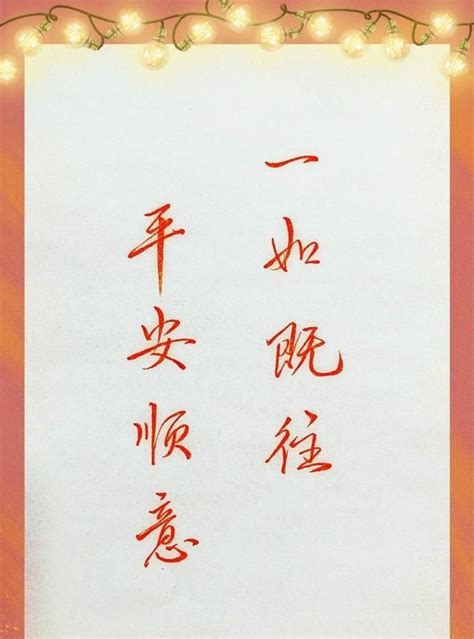 一如既往
平安顺意